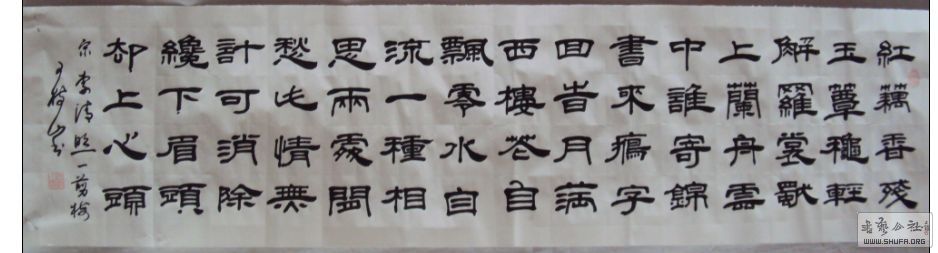 紅藕香殘
玉簟穐輕
解羅裳獨
上蘭舟雲
中誰寄錦
書來鴈字
回旹月滿
西樓花自
飄零水自
流一種相
思兩處閒
愁此情無
計可消除
纔下眉頭
却上心頭
宋李清照一剪梅
书艺公社
WWW.SHUFA.ORG